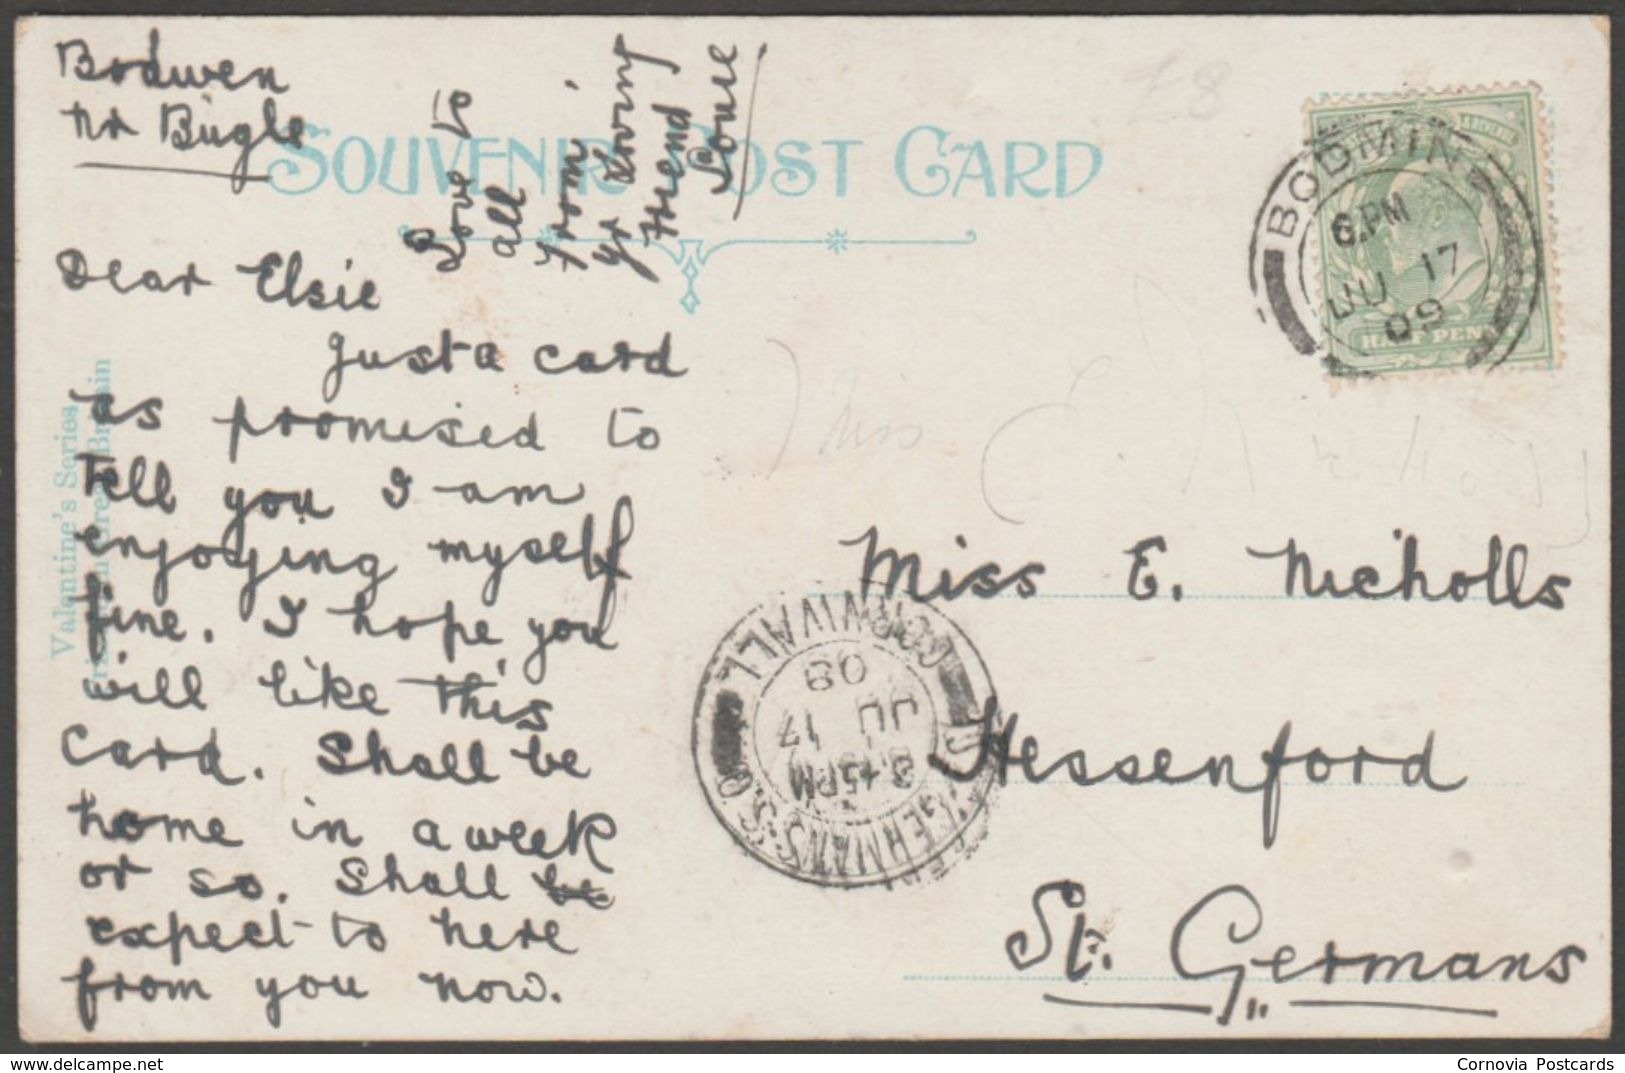 Bodwen
nr Bugle
SOUVENIR POST CARD
Love to
all
from
yr loving
friend
Louie
Dear Elsie
Just a card
as promised to
tell you I am
enjoying myself
fine. I hope you
will like this
card. Shall be
home in a week
or so. Shall be
expect to here
from you now.
Valentine's Series
BODMIN
6.PM
JU 17
09
HALF PENNY
Miss E. Nicholls
Hessenford
St. Germans
ST GERMANS S.O.
8.45PM
JU 17
CORNWALL
Miss E
£8
Cornovia Postcards